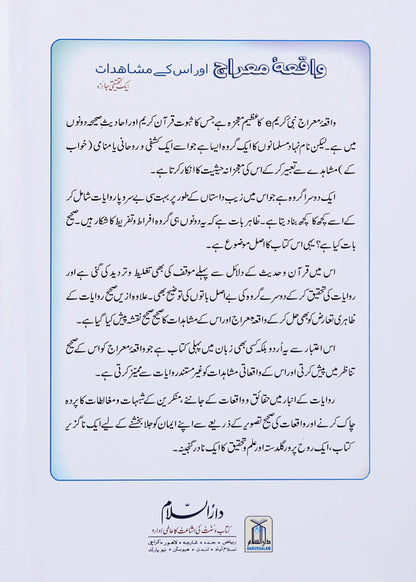 واقعۂ معراج اور اس کے مشاہدات
ایک تحقیقی جائزہ
واقعۂ معراج نبیٔ کریم e کا عظیم معجزہ ہے جس کا ثبوت قرآن کریم اور احادیثِ صحیحہ دونوں
میں ہے۔ لیکن نام نہاد مسلمانوں کا ایک گروہ ایسا ہے جو اسے ایک کشفی و روحانی یا منامی (خواب
کے) مشاہدے سے تعبیر کر کے اس کی معجزانہ حیثیت کا انکار کرتا ہے۔
ایک دوسرا گروہ ہے جو اس میں زیبِ داستاں کے طور پر بہت سی بے سروپا روایات شامل کر
کے اسے کچھ کا کچھ بنا دیتا ہے۔ ظاہر بات ہے کہ یہ دونوں ہی گروہ افراط و تفریط کا شکار ہیں۔ صحیح
بات کیا ہے؟ یہی اس کتاب کا اصل موضوع ہے۔
اس میں قرآن و حدیث کے دلائل سے پہلے موقف کی بھی تغلیط و تردید کی گئی ہے اور
روایات کی تحقیق کر کے دوسرے گروہ کی بے اصل باتوں کی توضیح بھی۔ علاوہ ازیں صحیح روایات کے
ظاہری تعارض کو بھی حل کر کے واقعۂ معراج اور اس کے مشاہدات کا صحیح صحیح نقشہ پیش کیا گیا ہے۔
اس اعتبار سے یہ اُردو بلکہ کسی بھی زبان میں پہلی کتاب ہے جو واقعۂ معراج کو اس کے صحیح
تناظر میں پیش کرتی اور اس کے واقعاتی مشاہدات کو غیر مستند روایات سے ممیّز کرتی ہے۔
روایات کے انبار میں حقائق و واقعات کے جاننے، منکرین کے شبہات و مغالطات کا پردہ
چاک کرنے اور واقعات کی صحیح تصویر کے ذریعے سے اپنے ایمان کو جلا بخشنے کے لیے ایک ناگزیر
کتاب، ایک روح پرور گلدستہ اور علم و تحقیق کا ایک نادر گنجینہ۔
دارالسلام
کتاب و سُنّت کی اشاعت کا عالمی ادارہ
ریاض • جدہ • شارجہ • لاہور • کراچی
اسلام آباد • لندن • ہیوسٹن • نیو یارک
دارالسلام
DARUSSALAM